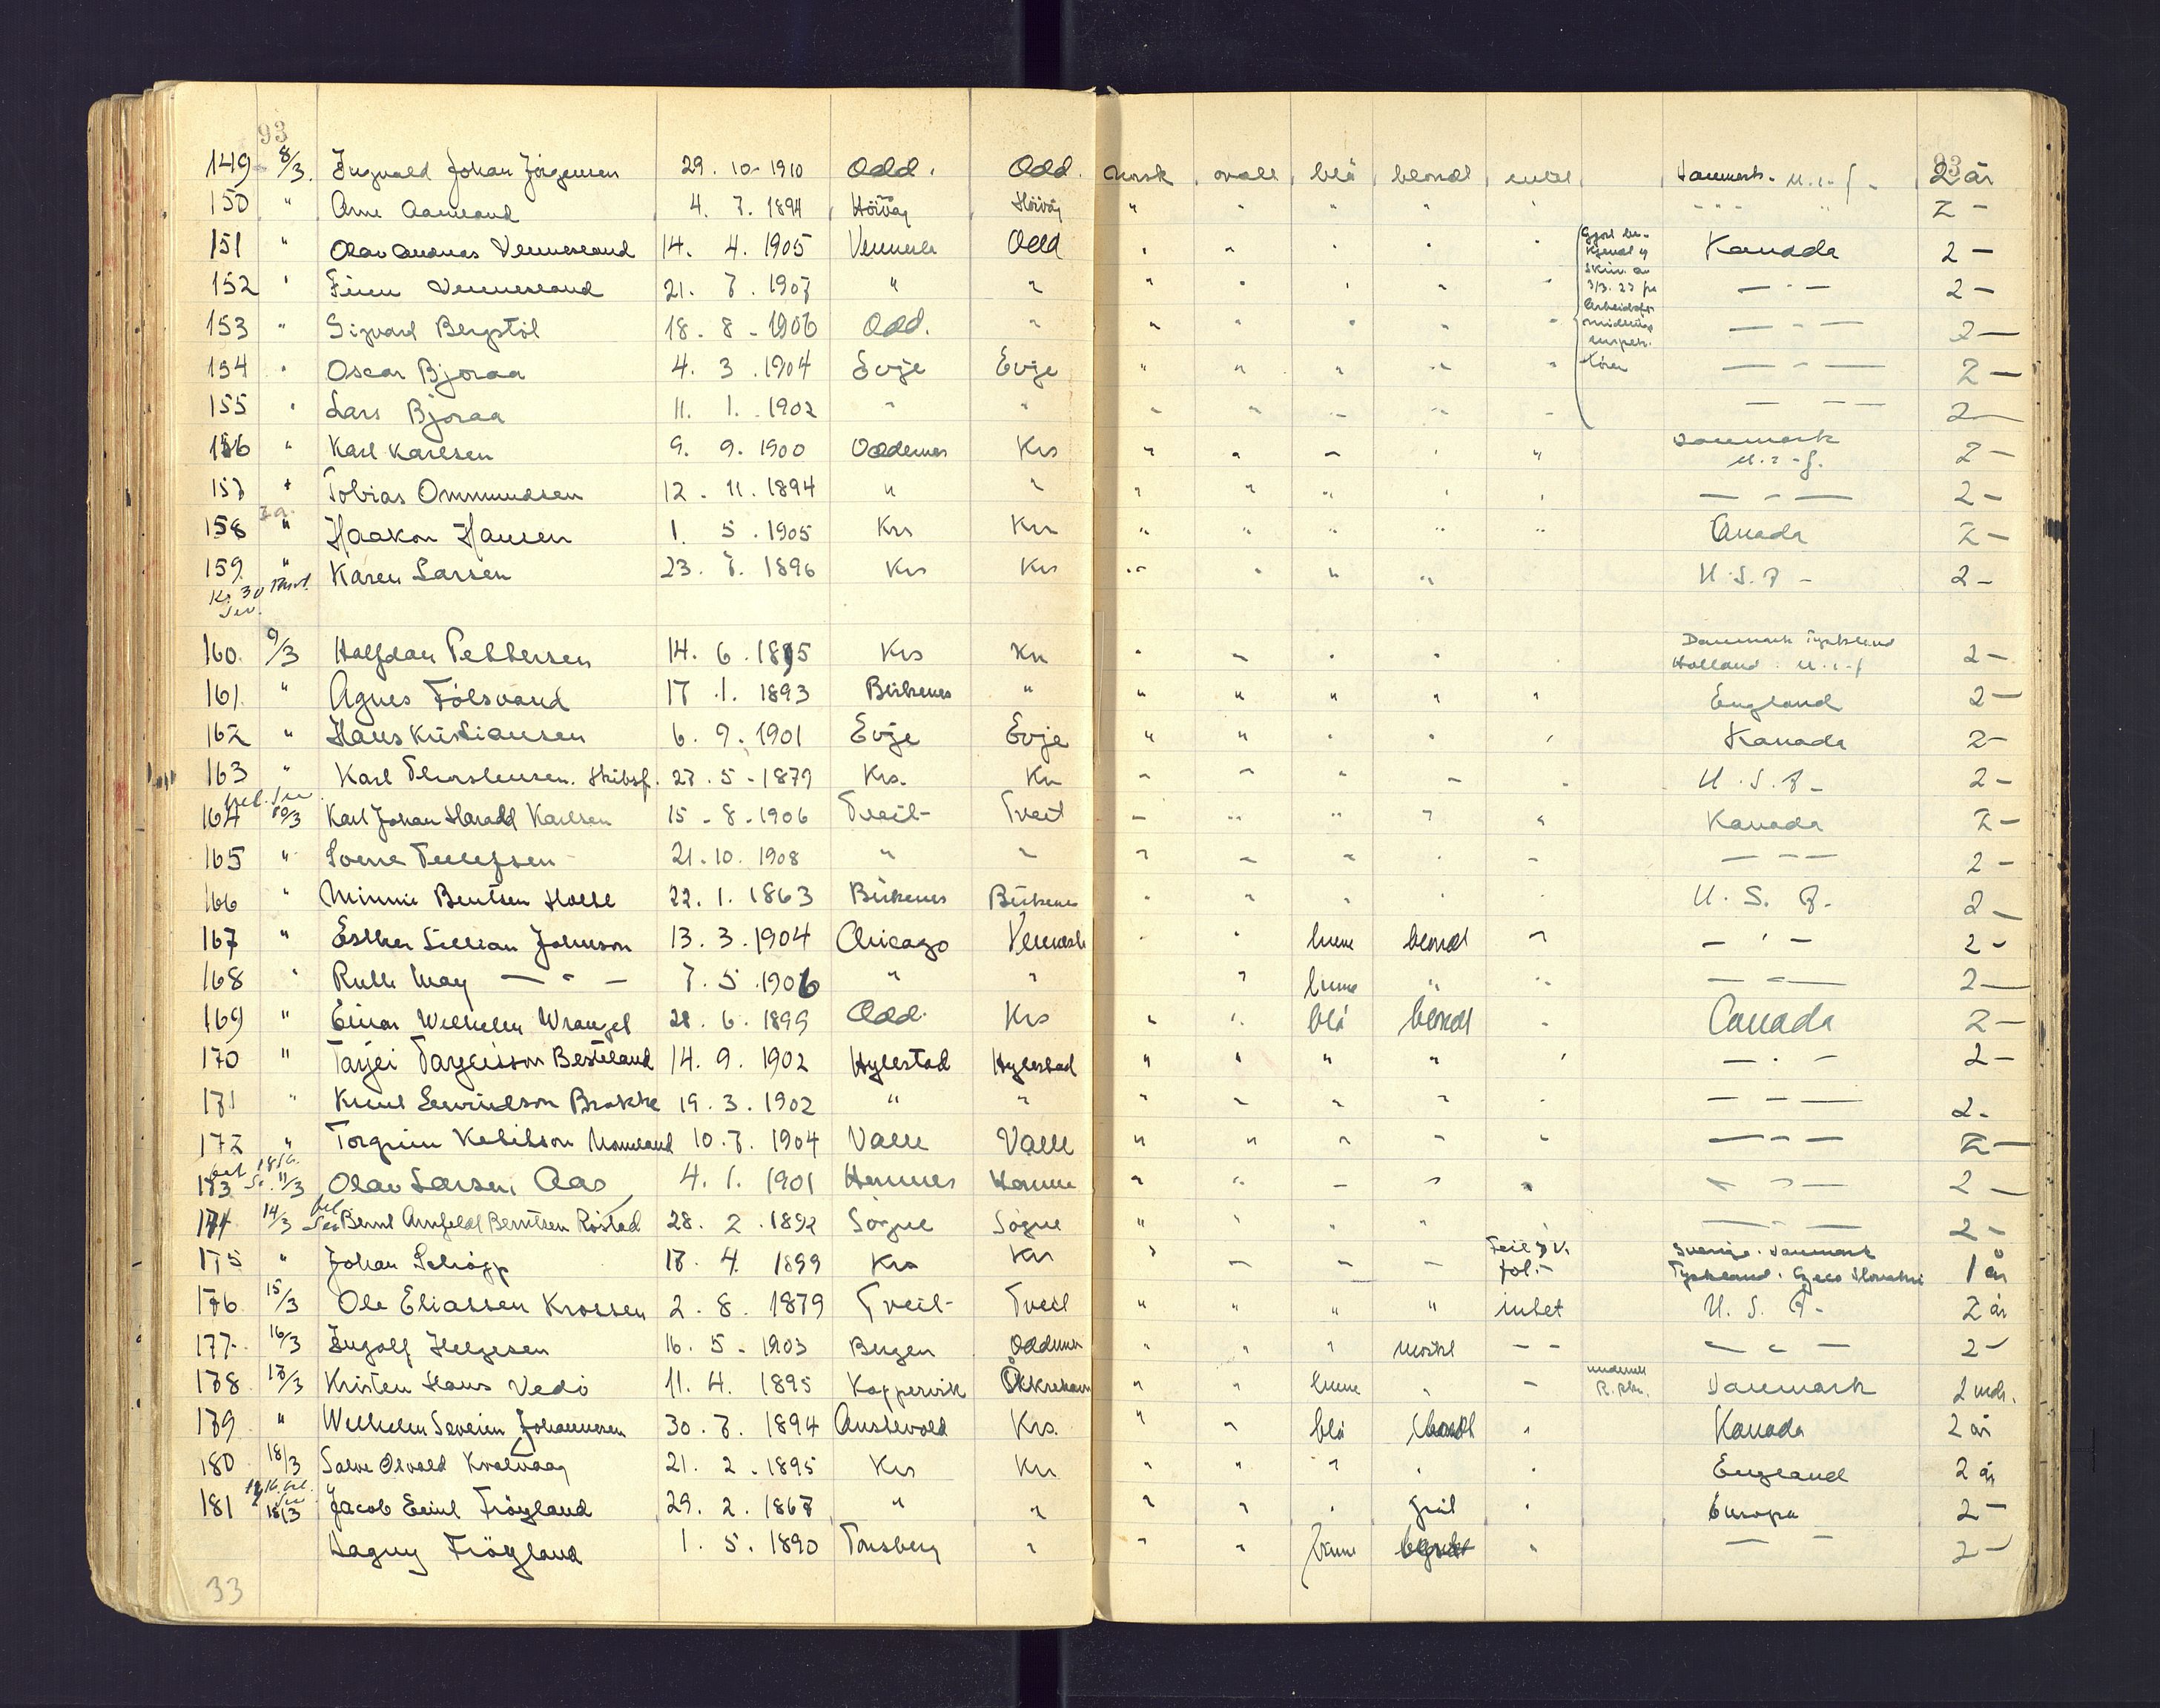 93 93
149 8/3. Ingvald Johan Jörgensen 29. 10. 1910 Odd. Odd. norsk ovalt blå blondt intet Danmark. m. i. f. 2 år
150 " Arne Aamland 4. 7. 1894 Hövåg Hövåg " " " " " - - - " 2 -
151 " Olav Andreas Vennesland 14. 4. 1905 Vennesla Odd " " " " " Kanada 2 -
152 " Finn Vennesland 21. 7. 1907 " " " " " " " — " — 2 -
153 " Sigvard Bergstöl 18. 8. 1906 Odd. " " " " " " — " — 2 -
154 " Oscar Bjoraa 4. 3. 1904 Evje Evje " " " " " — " — 2 -
155 " Lars Bjoraa 11. 1. 1902 " " " " " " " — " — 2 -
156 " Karl Karlsen 9. 9. 1900 Oddernes Krs " " " " " Danmark m. i. f. 2 -
157 " Tobias Ommundsen 12. 11. 1894 " " " " " " " — " — 2 -
158 " Haakon Hansen 1. 5. 1905 Krs Krs " " " " " Canada 2 -
159 " Karen Larsen 23. 7. 1896 Krs Krs " " " " U.S.A - 2 -
160. 9/3 Halfdan Pettersen 14. 6. 1895 Krs Krs " " " " Danmark Tyskland
Holland. m. i. f 2 -
161. " Agnes Fölsvand 17. 1. 1893 Birkenes " " " " " " England 2 -
162 " Hans Kristiansen 6. 9. 1901 Evje Evje " " " " " Kanada 2 -
163 " Karl Skibsf. 27. 5. 1879 Krs. Krs " " " " " U.S.A - 2 -
164 10/3 Karl Johan Harald Karlsen 15. 8. 1906 Tveit Tveit " " " " " Kanada 2 -
165 " Tellefsen 21. 10. 1908 " " " " " " " — " — 2 -
166 " Minnie Bentsen 22. 1. 1863 Birkenes Birkenes " " " " " U. S. A. 2 -
167 " Esther Lillian Johnson 13. 3. 1904 Chicago Vennesla " " brune blondt " — " — 2 -
168 " Ruth May — " — 7. 5. 1906 " " " brune " " — " — 2 -
169 " Einar Wilhelm Wrangel 28. 6. 1899 Odd. Krs " " blå blondt " Canada 2 -
170 " Tarjei Targeisson Besteland 14. 9. 1902 Hylestad Hylestad " " " " " — " — 2 -
171 " Knut Brokke 19. 3. 1902 " " " " " " " — " — 2 -
172 " Torgrim Homeland 10. 7. 1904 Valle Valle " " " " " — " — 2 -
173 11/3 Olav Larsen Aas 4. 1. 1901 " " " " " — " — 2 -
174 14/3 Bernt Arnfeldt Berntsen Röstad 28. 2. 1892 Sögne Sögne " " " " — " — 2 -
175 " Johan 17. 4. 1899 Krs Krs " " " " Sverige. Danmark
Tyskland. 1 år
176 15/3 Ole Eliassen Krossen 2. 8. 1879 Tveit Tveit " " " " intet U. S. A - 2 år
177. 16/3 Ingolf Helgesen 16. 5. 1903 Bergen Oddernes " " " mörkt - - — " — 2 -
178 17/3 Kristen Hans Vedö 11. 4. 1895 Koppervik " " brune " - Danmark 2 mdr.
179 " Wilhelm Severin Johannesen 30. 7. 1894 Austevold Krs. " " blå blondt " Kanada 2 år
180 18/3 Salve Osvald Kvalvaag 21. 2. 1895 Krs Krs " " " " " England 2 år
181 18/3 Jacob Emil Fröyland 29. 2. 1867 " " " " " grå " Europa 2 -
Dagny Fröyland 1. 5. 1890 Tönsberg " " " brune " — — 2 -
33